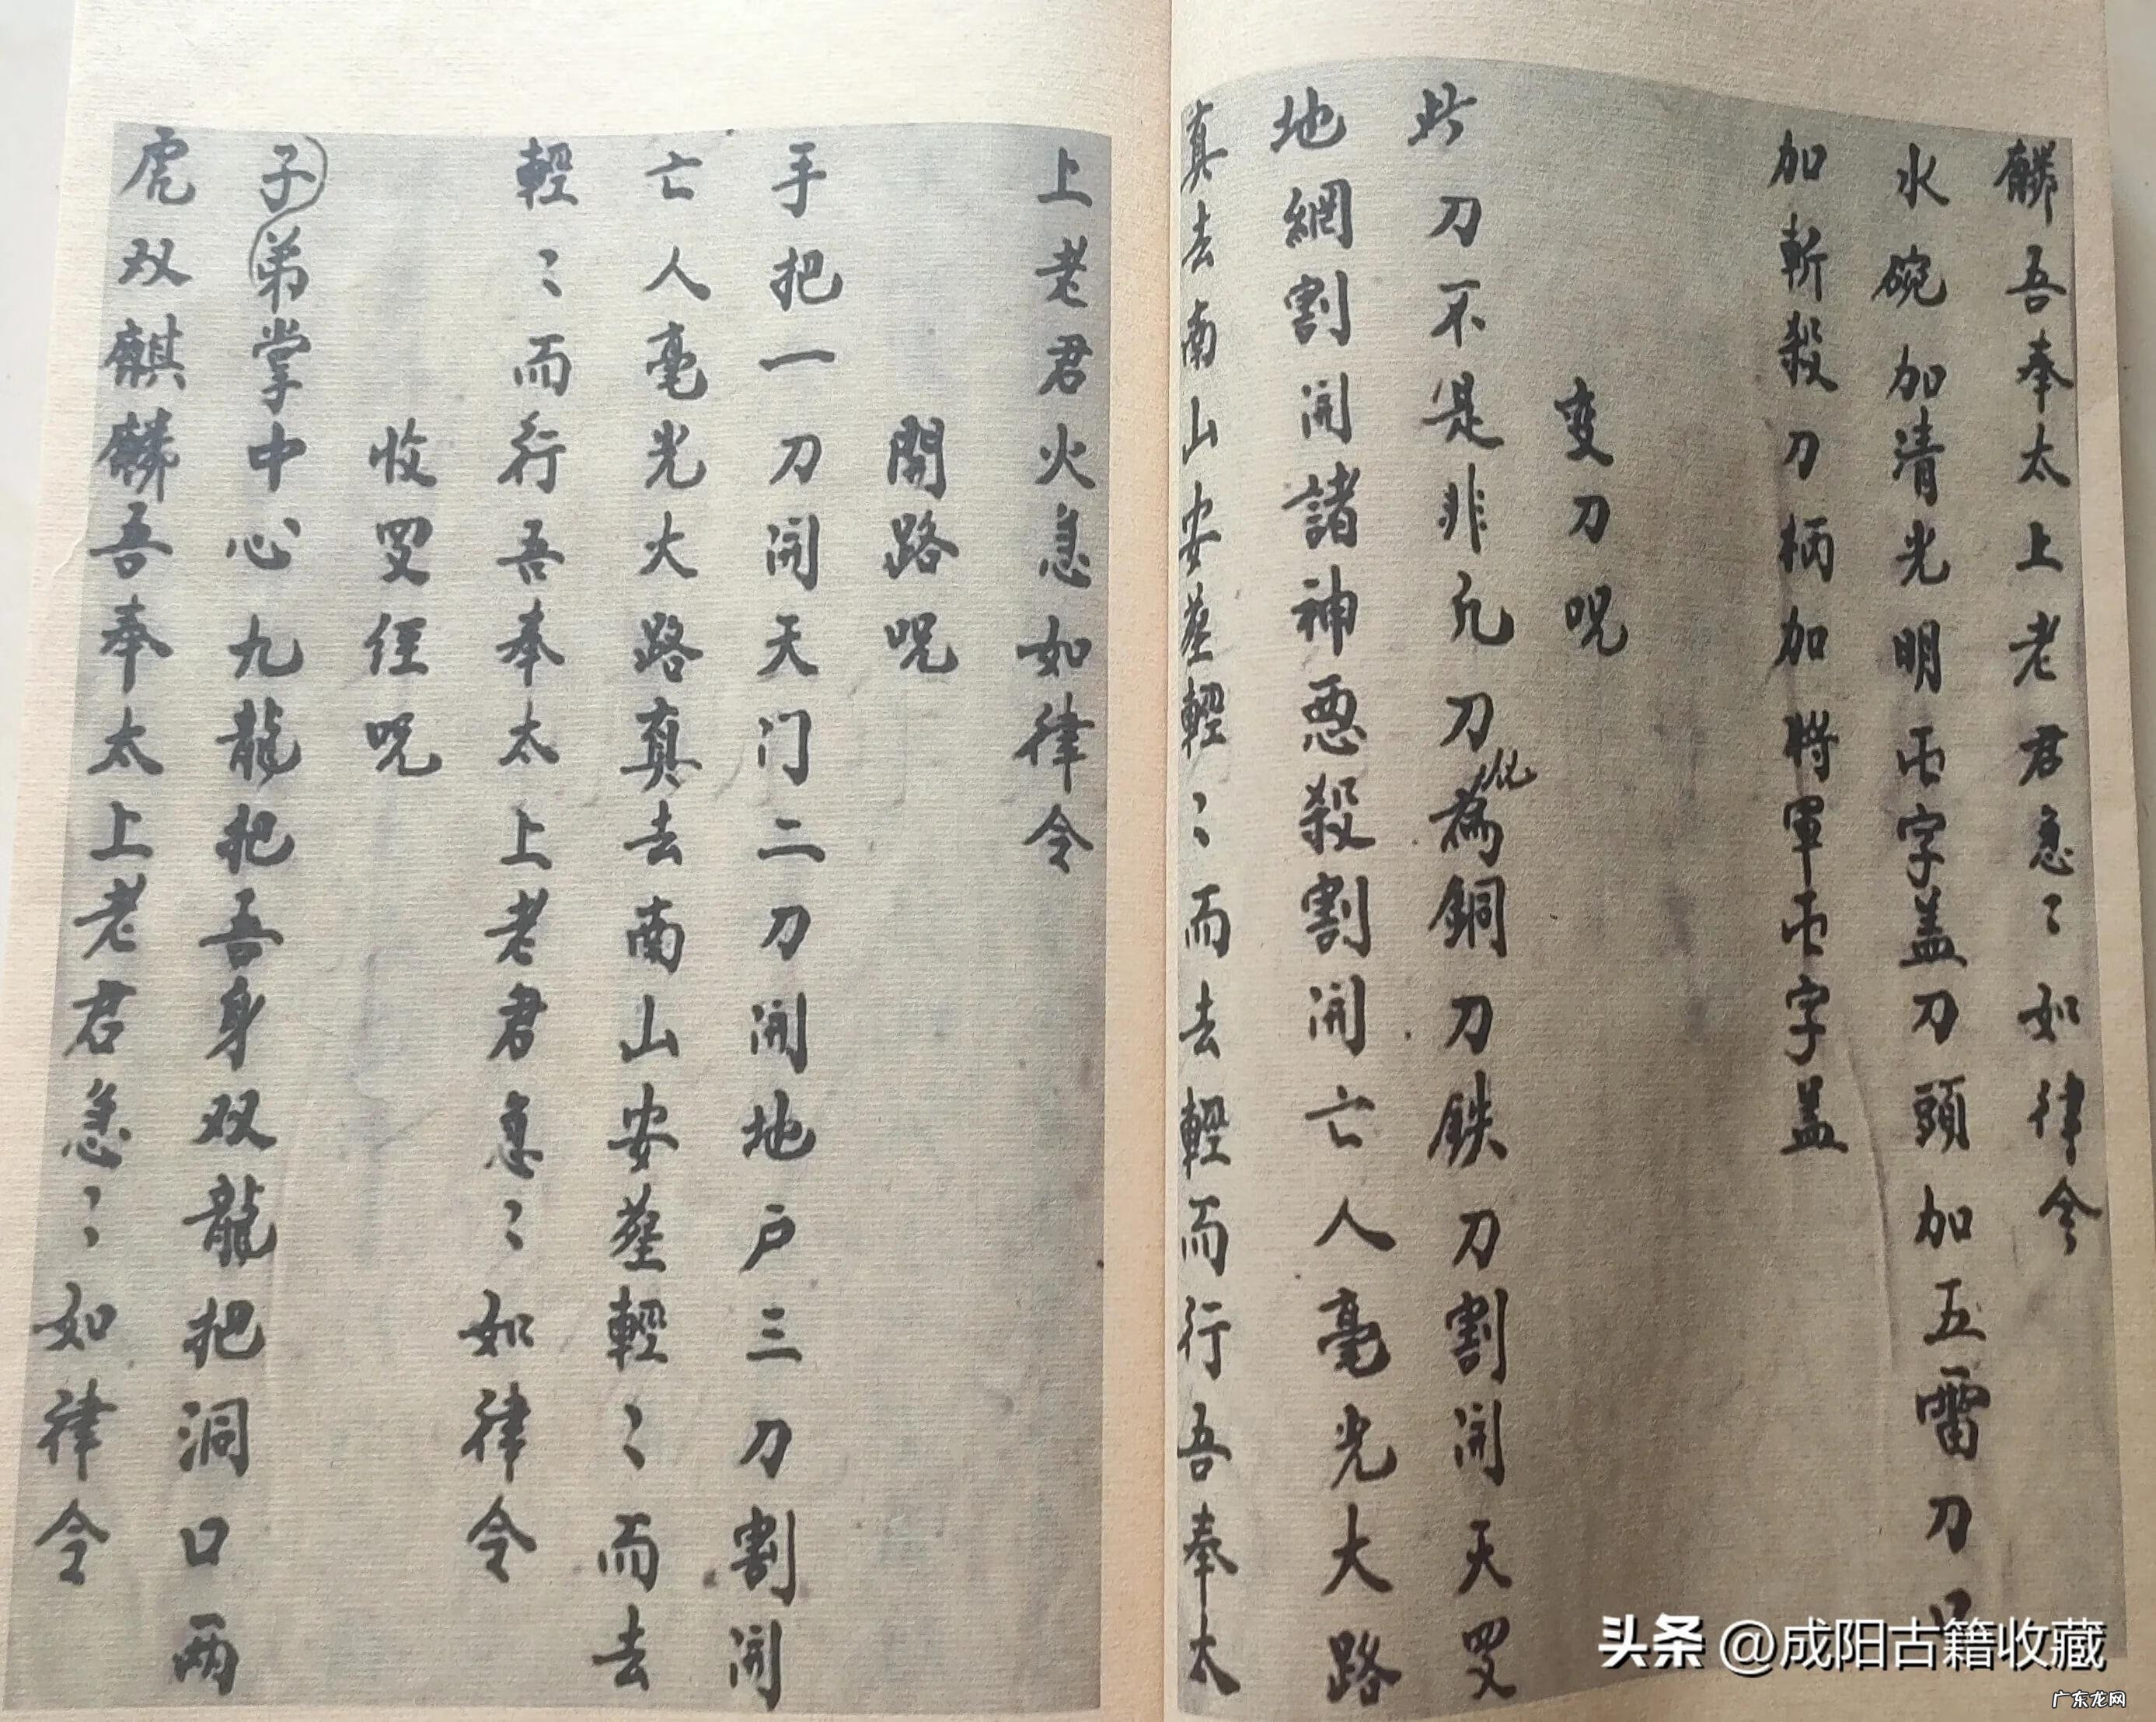 麟吾奉太上老君急〻如律令
水碗加清光明字盖刀頭加五雷刀口
加斬殺刀柄加將軍字盖
变刀呪
此刀不是非凢刀化為銅刀鉄刀割開天罗
地網割開諸神悪殺割開亡人毫光大路
真去南山安葬輕〻而去輕而行吾奉太
上老君火急如律令
開路呪
手把一刀開天门二刀開地户三刀割開
亡人毫光大路真去南山安葬輕〻而去
輕〻而行吾奉太上老君急〻如律令
收罗呪
子弟掌中心九龍把吾身双龍把洞口两
虎双麒麟吾奉太上老君急〻如律令
头条 @成阳古籍收藏
广东龙网